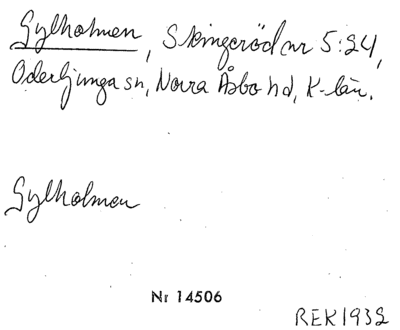 Gylholmen, Skingeröd nr 5:24,
Oderljunga sn, Norra Åsbo hd, K-län.
Gylholmen
Nr 14506
REK1932